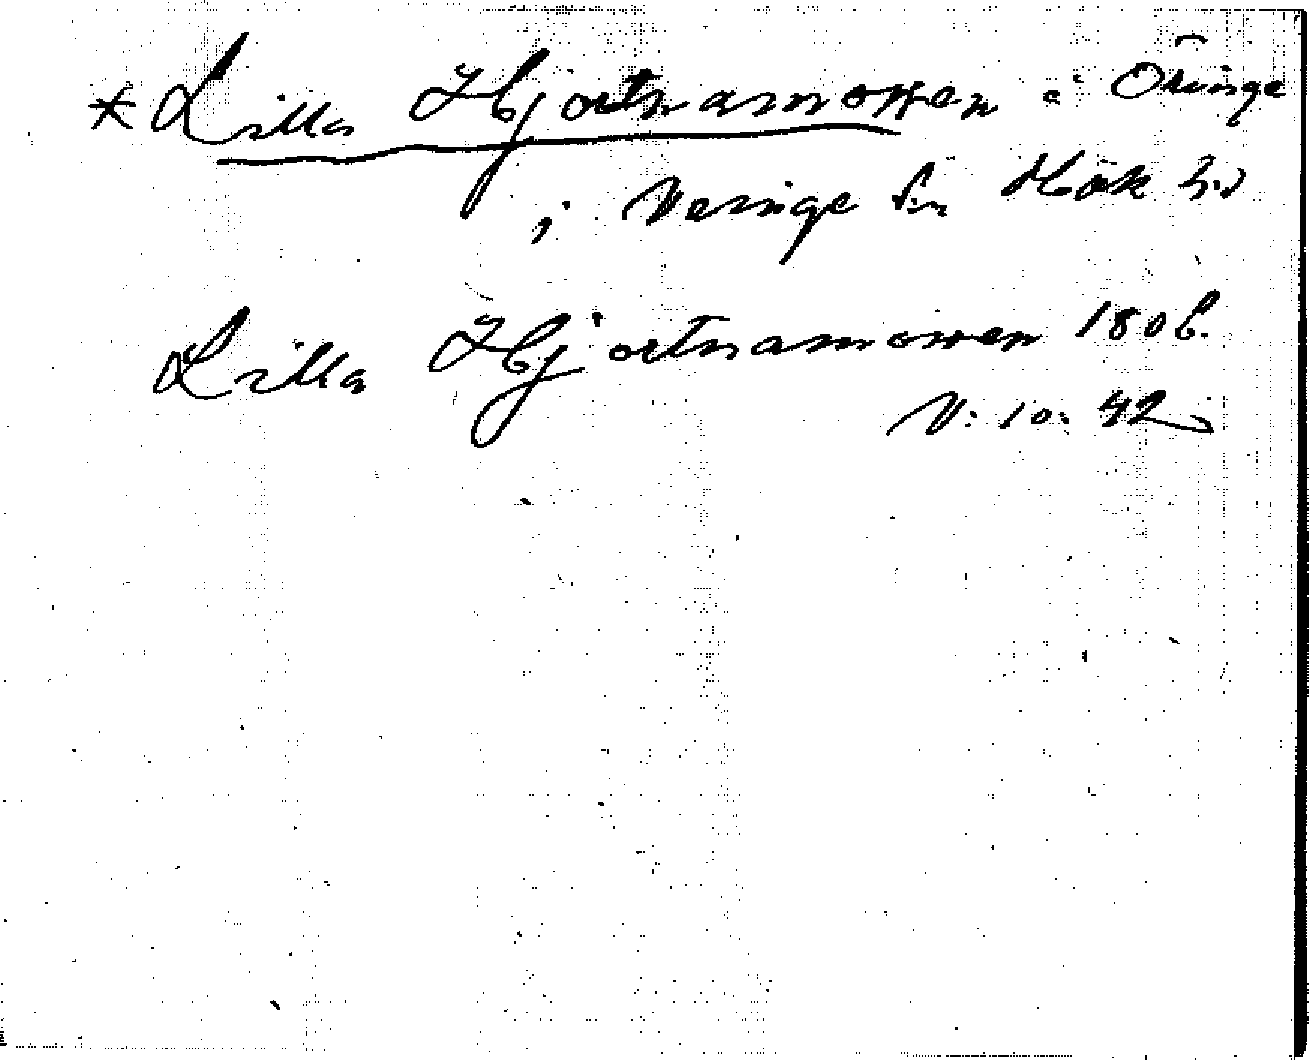 * Lilla Hjortnamossen i Öringe
i Veinge sn Höks hd
Lilla Hjortnamossen 1806.
V: 10: 42